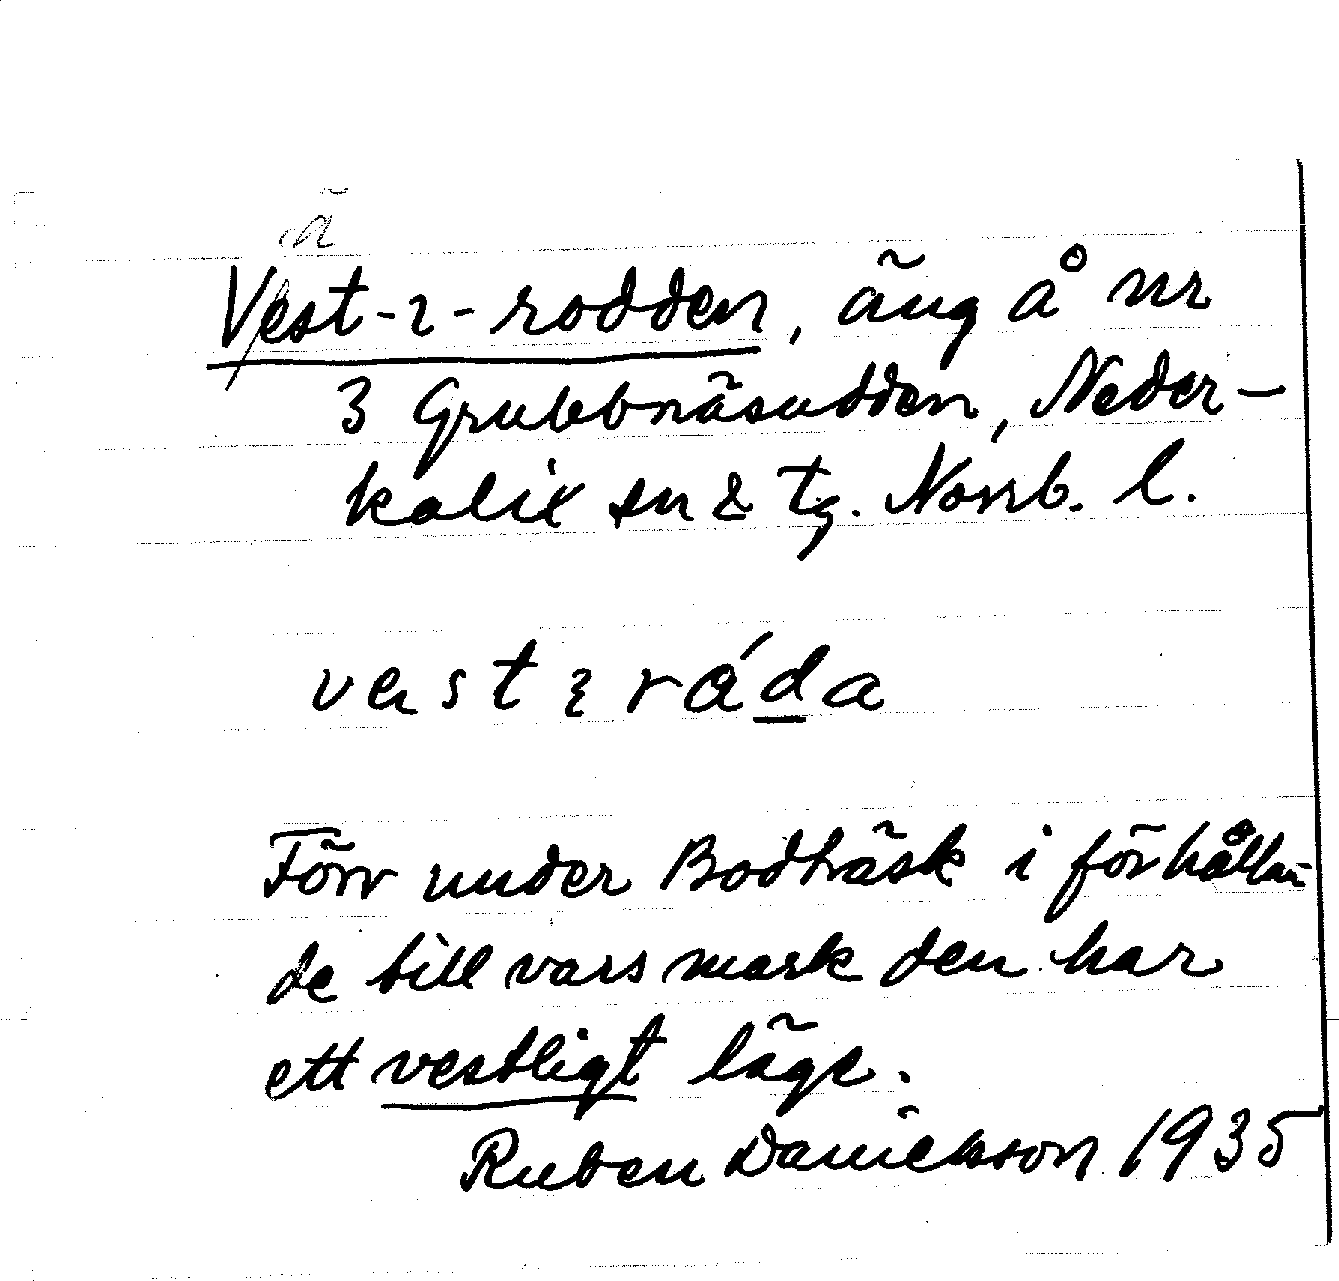 ä
Vest-r-rodden, äng å nr
3 Grubbnäsudden, Neder-
kalix sn & tg. Norrb. l.
vest ráda
Förr under Bodträsk i förhållan-
de till vars mark den har
ett vestligt läge.
Ruben Danielsson 1935